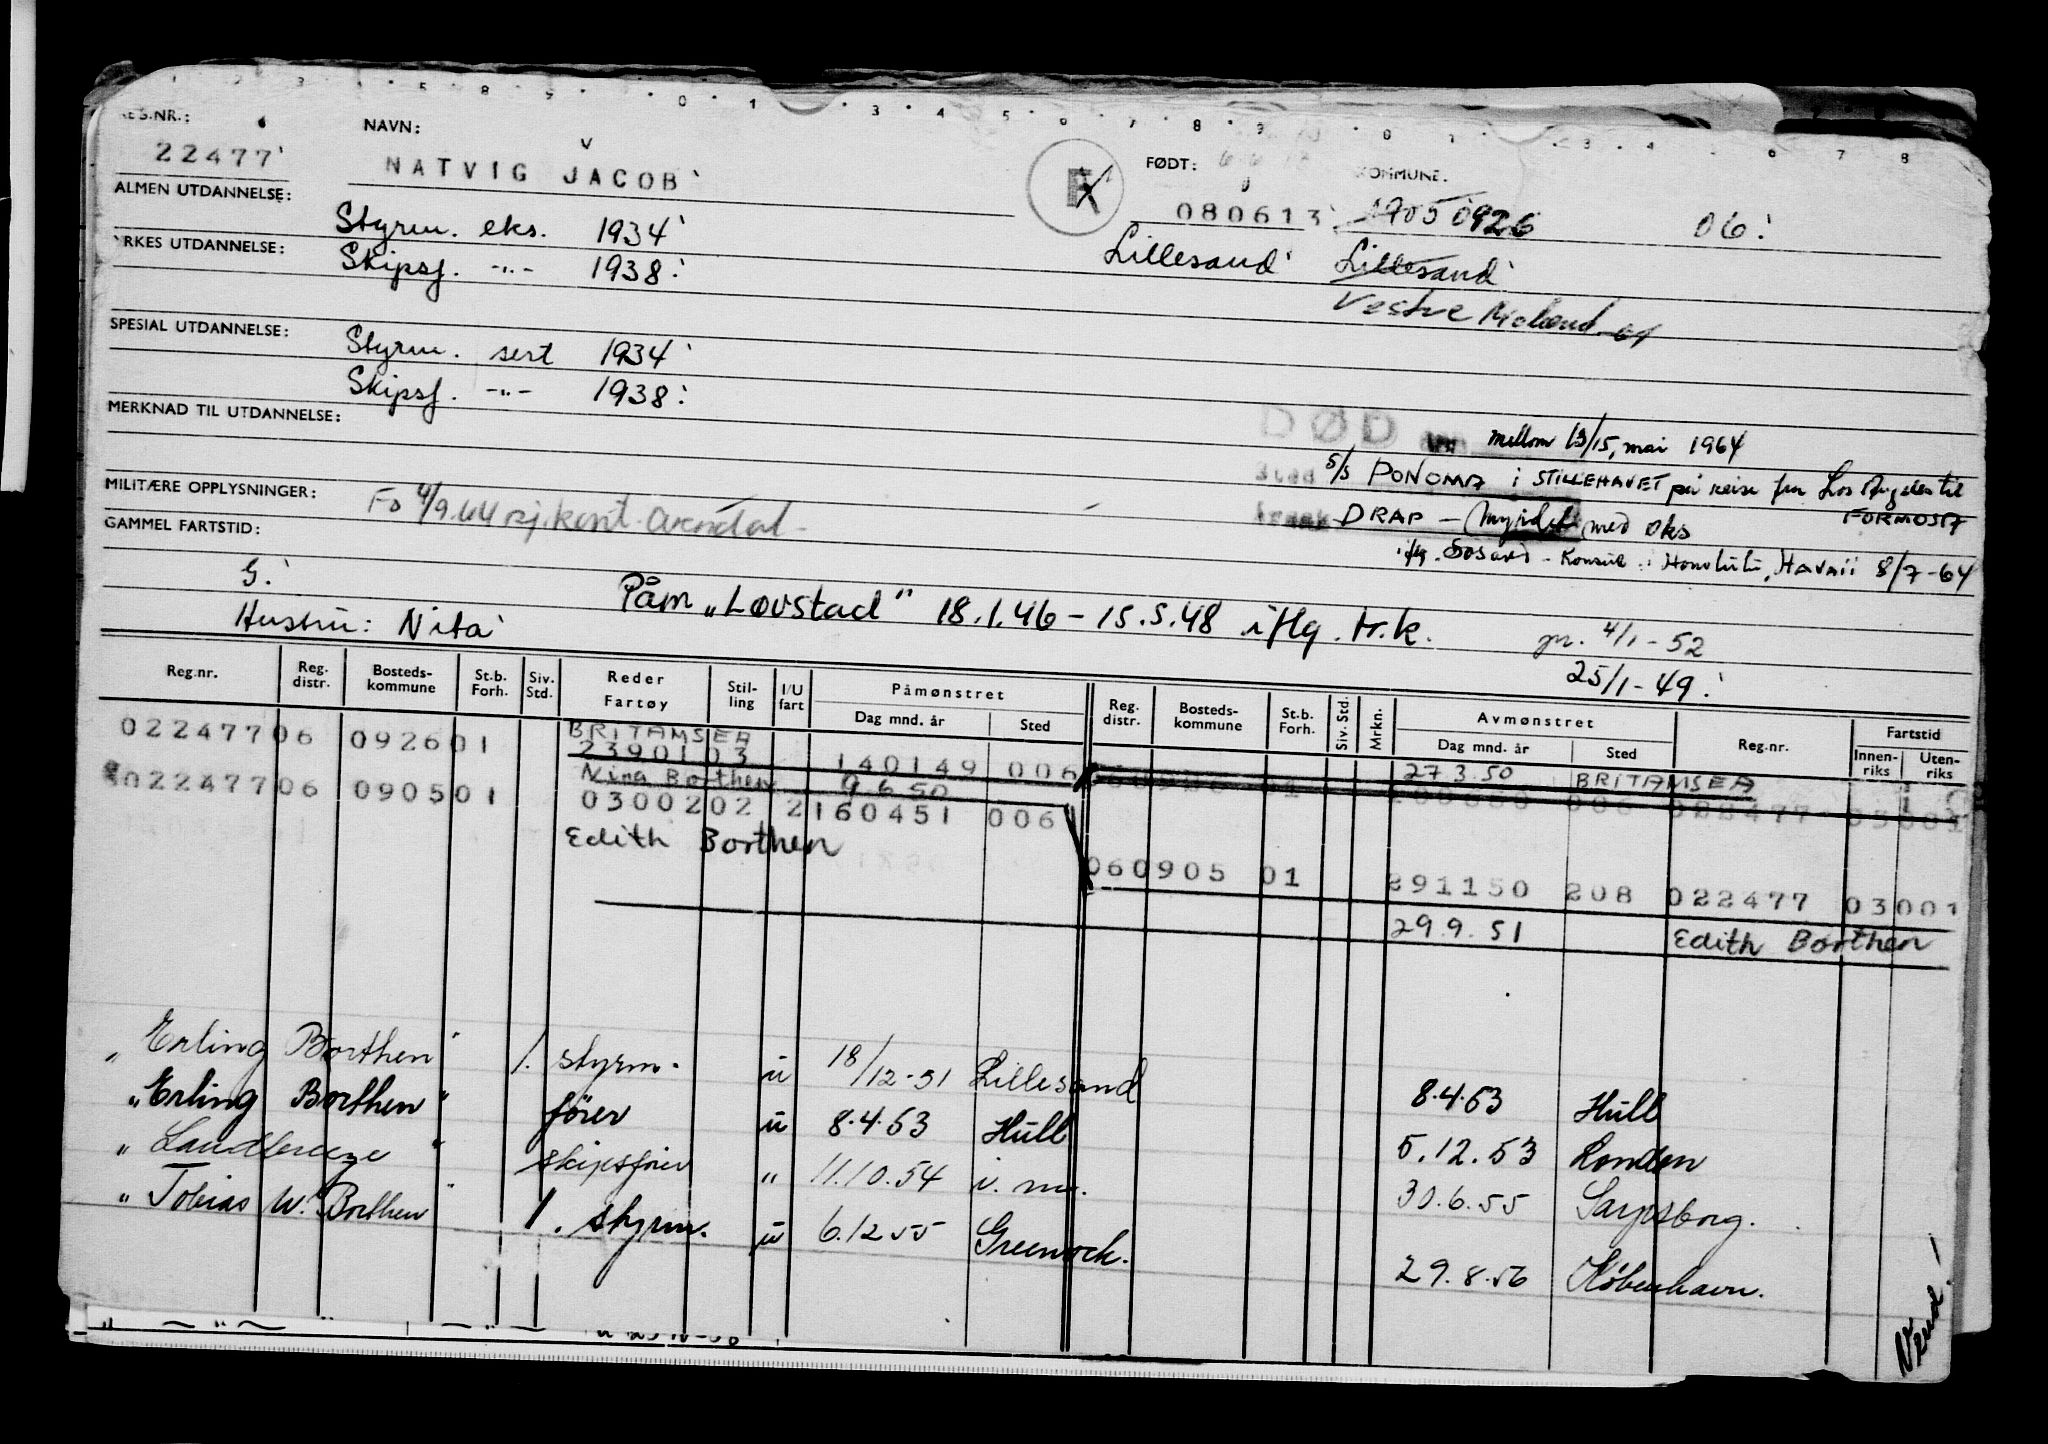 REG.NR.: NAVN: FØDT: KOMMUNE:
22477 NATVIG JACOB 080613 0926 06
ALMEN UTDANNELSE: Styrm. eks. 1934 Lillesand Lillesand
YRKES UTDANNELSE: Skipsf. -"- 1938
Vestre Moland
SPESIAL UTDANNELSE: Styrm. sert 1934
Skipsf. -"- 1938
MERKNAD TIL UTDANNELSE:
DØD den mellom 13/15, mai 1964
Sted S/S PONOMA i STILLEHAVET på reise fra Los Angeles til FORMOSA
MILITÆRE OPPLYSNINGER: Fo 4/9.44 sj.kont. Arendal
DRAP - (myrdet med øks
GAMMEL FARTSTID:
iflg. Konsul i Honolulu, Havaii 8/7-64
G.
Påm „Lovstad" 18.1.46 - 15.5.48 iflg. tr.k.
Hustru: Nita
4/1-52
25/1-49
Reg.nr. Reg. distr. Bosteds-kommune St.b. Forh. Siv. Std. Reder Fartøy Stil-ling I/U fart Påmønstret Dag mnd. år Sted Reg. distr. Bosteds-kommune St.b. Forh. Siv. Std. Mrkn. Avmønstret Dag mnd. år Sted Reg.nr. Fartstid Innen-riks Uten-riks
BRITAMSEA
022477 06 0926 01 23901 03 140149 006 27.3.50 BRITAMSEA
Nina Borthen 9.6.50
022477 06 0905 01 03002 02 2 160451 006
Edith Borthen
060905 01 291150 208 022477 03001
29.9.51 Edith Borthen
„Erling Borthen" 1. styrm. u 18/12-51 Lillesand 8.4.53 Hull
„Erling Borthen" fører u 8.4.53 Hull 5.12.53 London
„Landbreeze" skipsfører " 11.10.54 30.6.55 Sarpsborg.
„Tobias U. Borthen" 1. styrm. u 6.12.55 Greenock. 29.8.56 København.
Vend!